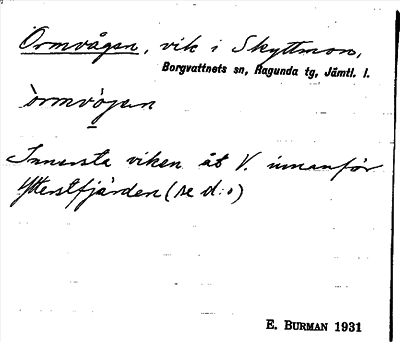 Örmvågen, vik i Skyttmon,
Borgvattnets sn, Ragunda tg, Jämtl. l.
örmvögen
Innersta viken åt V. innanför
Ytterstfjärden (se d:o)
E. BURMAN 1931